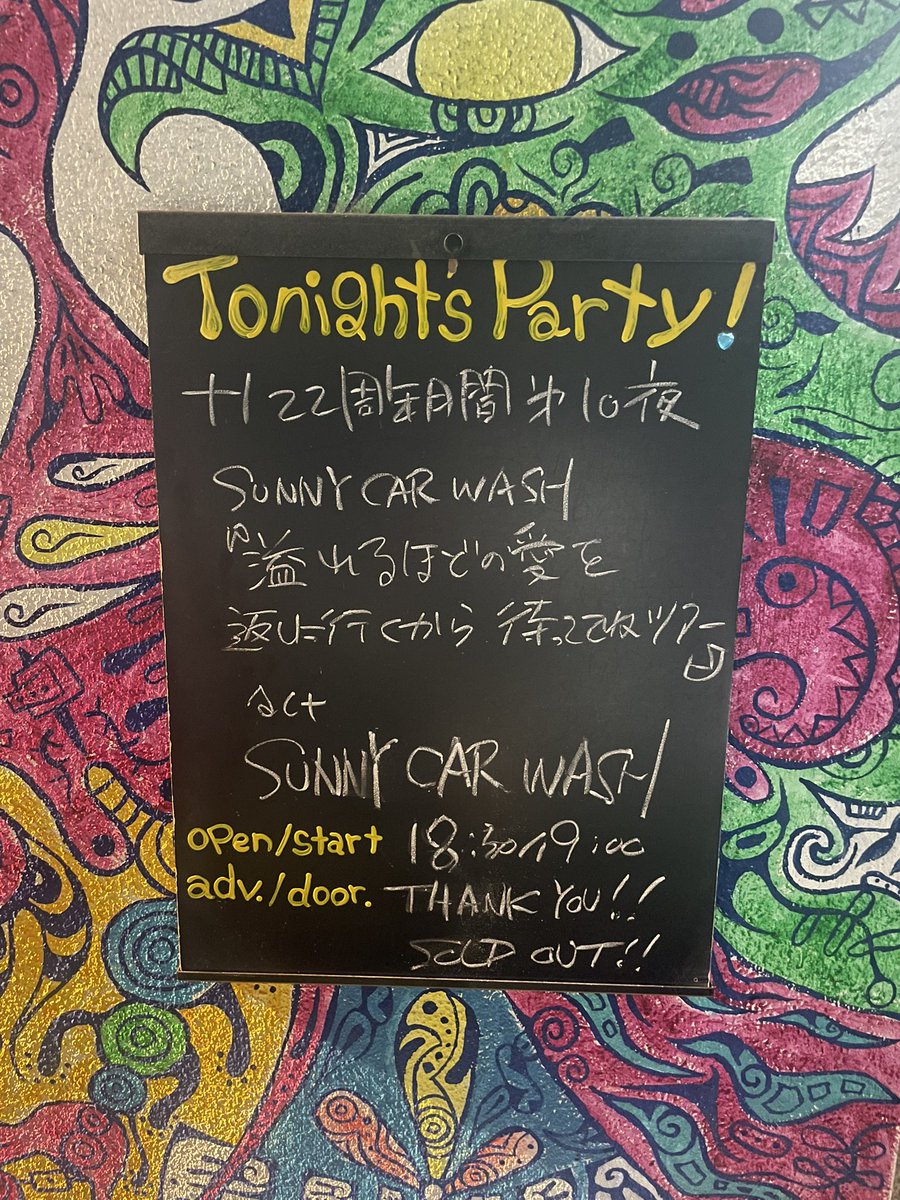 Tonight's Party!
22周年月間 第10夜
SUNNY CAR WASH
『溢れるほどの愛を
返しに行くから 待っててねツアー
』
act
SUNNY CAR WASH
open/start 18:30/19:00
adv./door. THANK YOU!!
SOLD OUT!!